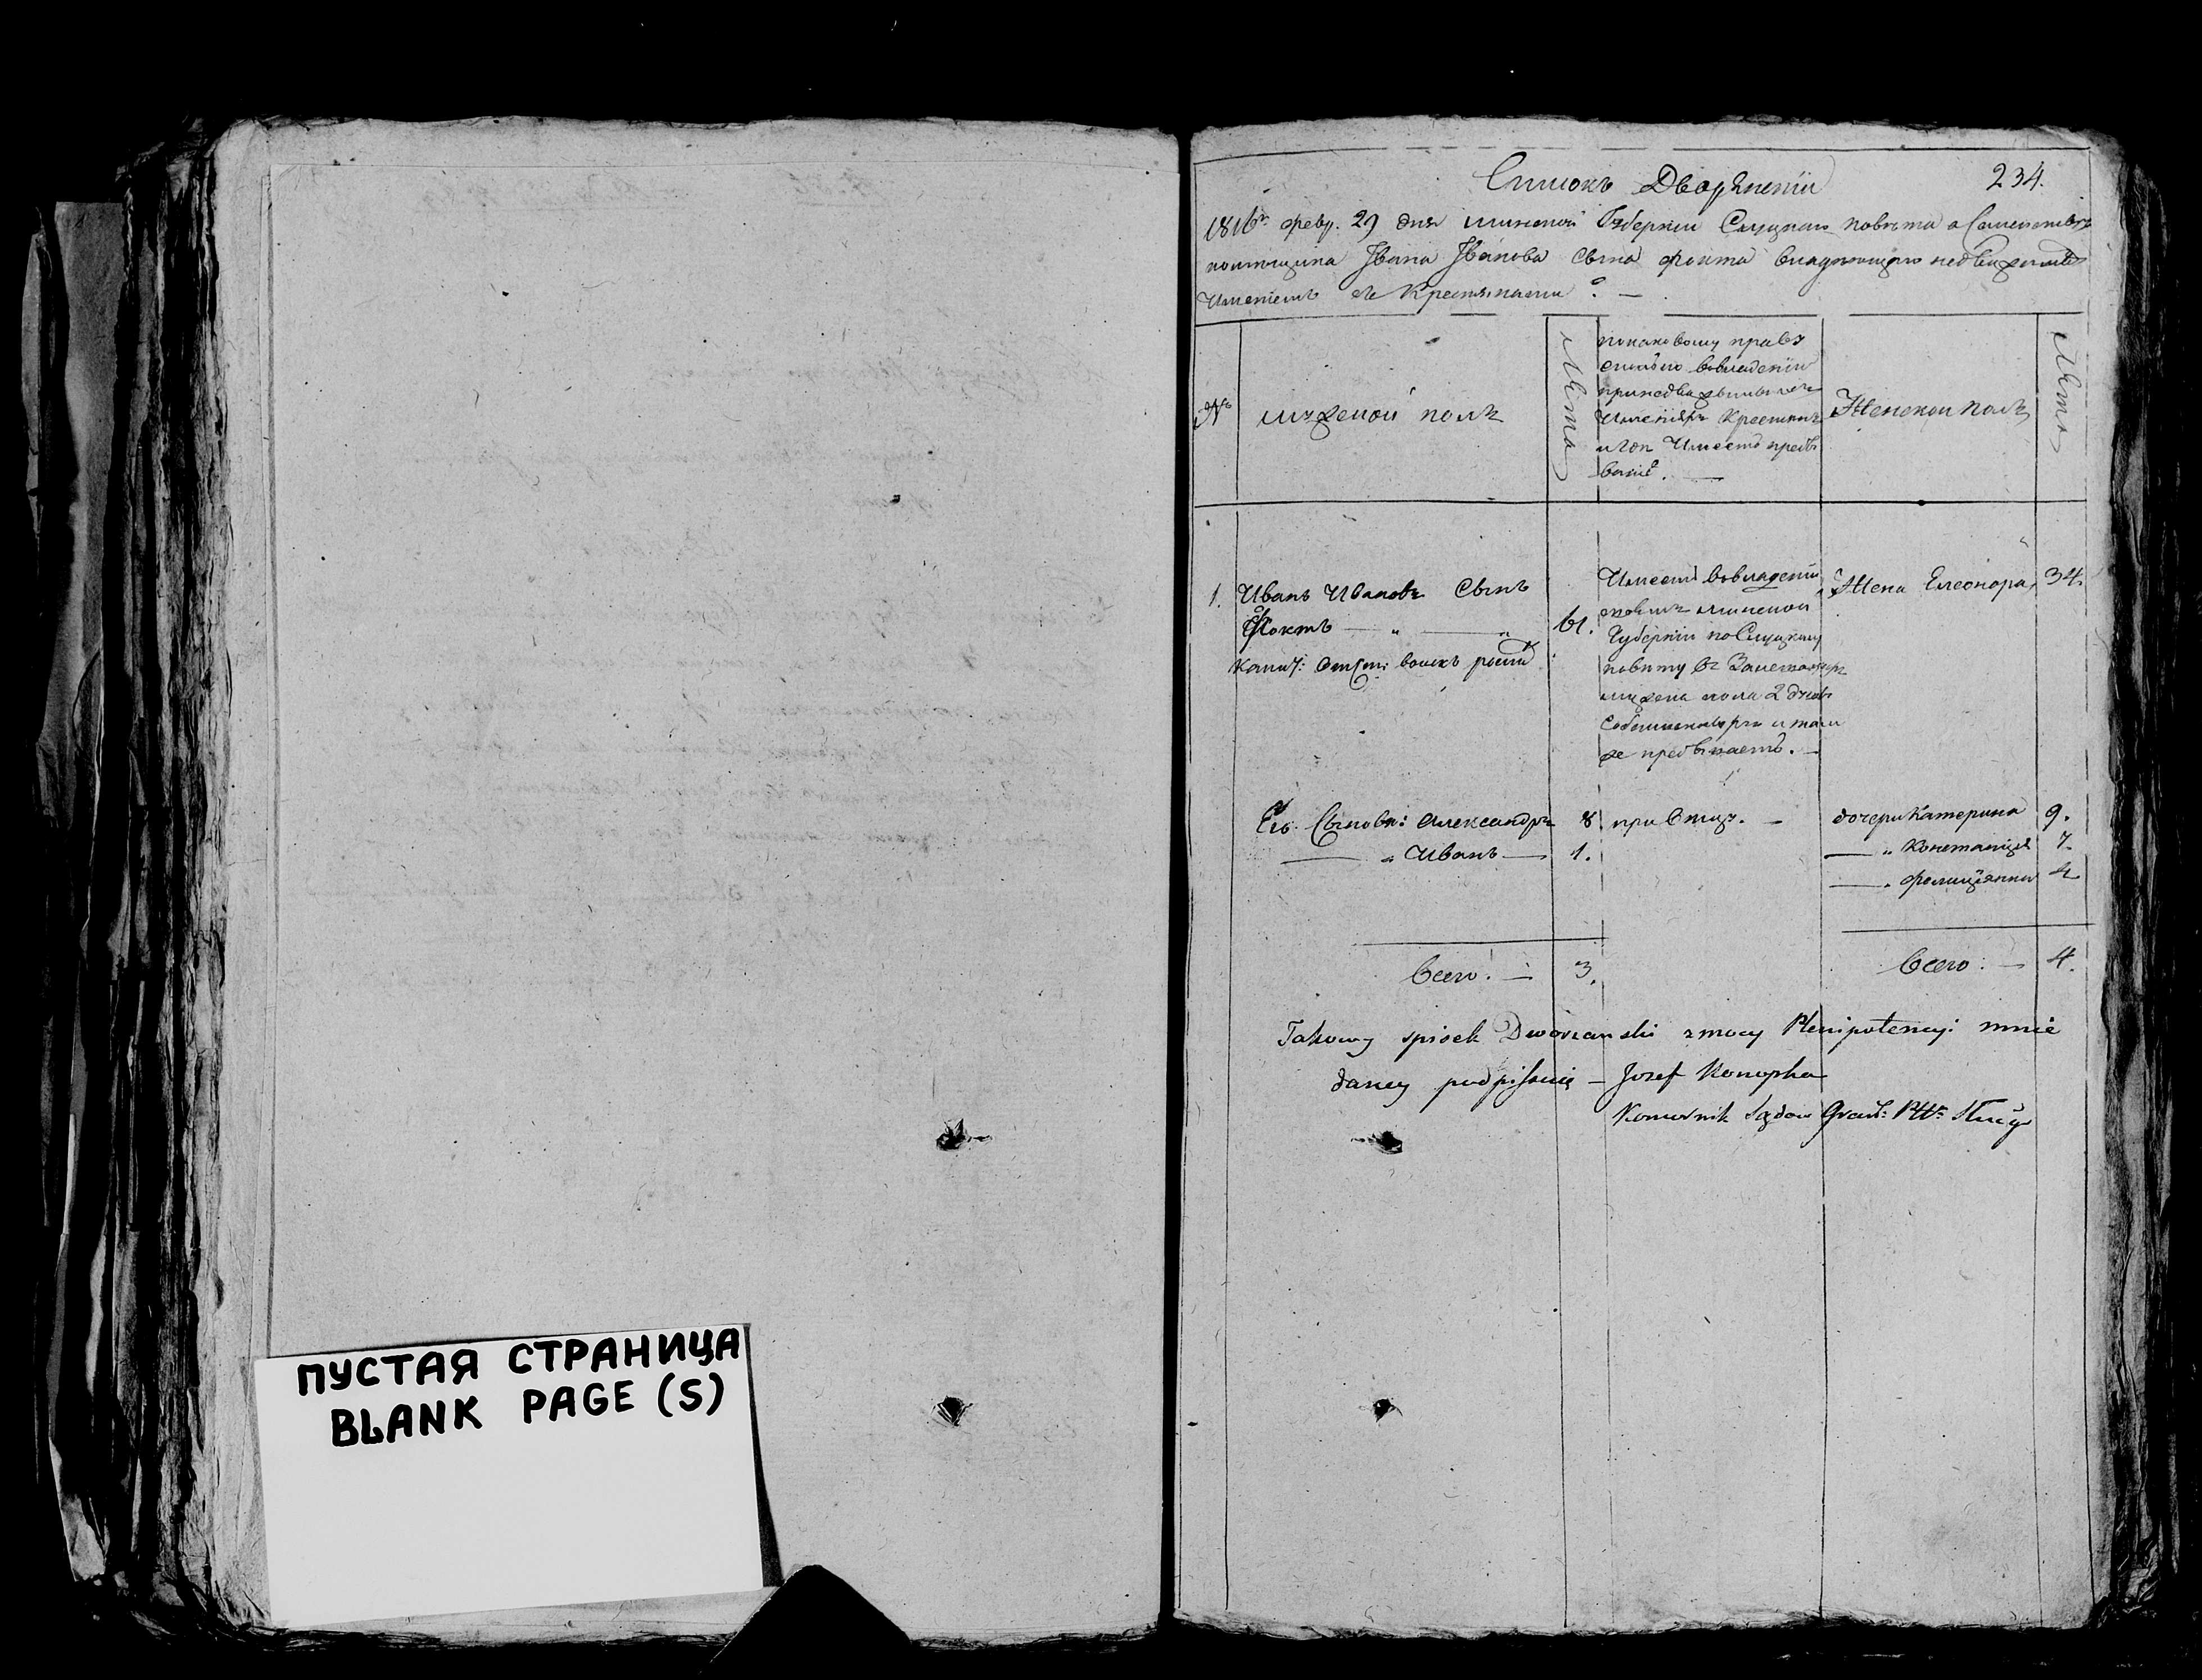 ПУСТАЯ СТРАНИЦА
BLANK PAGE (S)
Списокъ Дворянскій 234.
1816г. февр. 29 дня Минской Губерніи Слуцкаго повѣта о
помещика Ивана Иванова Сына Фохта владеющаго недвижимымъ
Именіемъ съ Крестьянами. —
№
мужескои полъ
лѣта
покаковому праву
состоитъ вовладеніи
Именіяхъ Крестьянъ
и гдѣ Имеетъ пребы
ваніе. —
Женскои полъ
лѣта
1. Иванъ Ивановъ Сынъ
Фохтъ — „ — „ 61.
войскъ
Имеетъ вовладеніи
Минской
Губерніи по Слуцкому
повѣту въ
мужска пола 2 душъ
и тамъ
же пребываетъ. —
Жена Елеонора 34.
Его Сыновья: Александръ 8. при Отцу. — дочери Катерина 9.
— „ Иванъ — 1. — „ Констанція 7.
— „ 4
Всего. — 3. Всего. — 4.
Takowy spisek Dworzanski z mocy Plenipotencyi mnie
daney podpisuię – Jozef Konopka
Komornik Sądow Gran: Pttu Słuc: